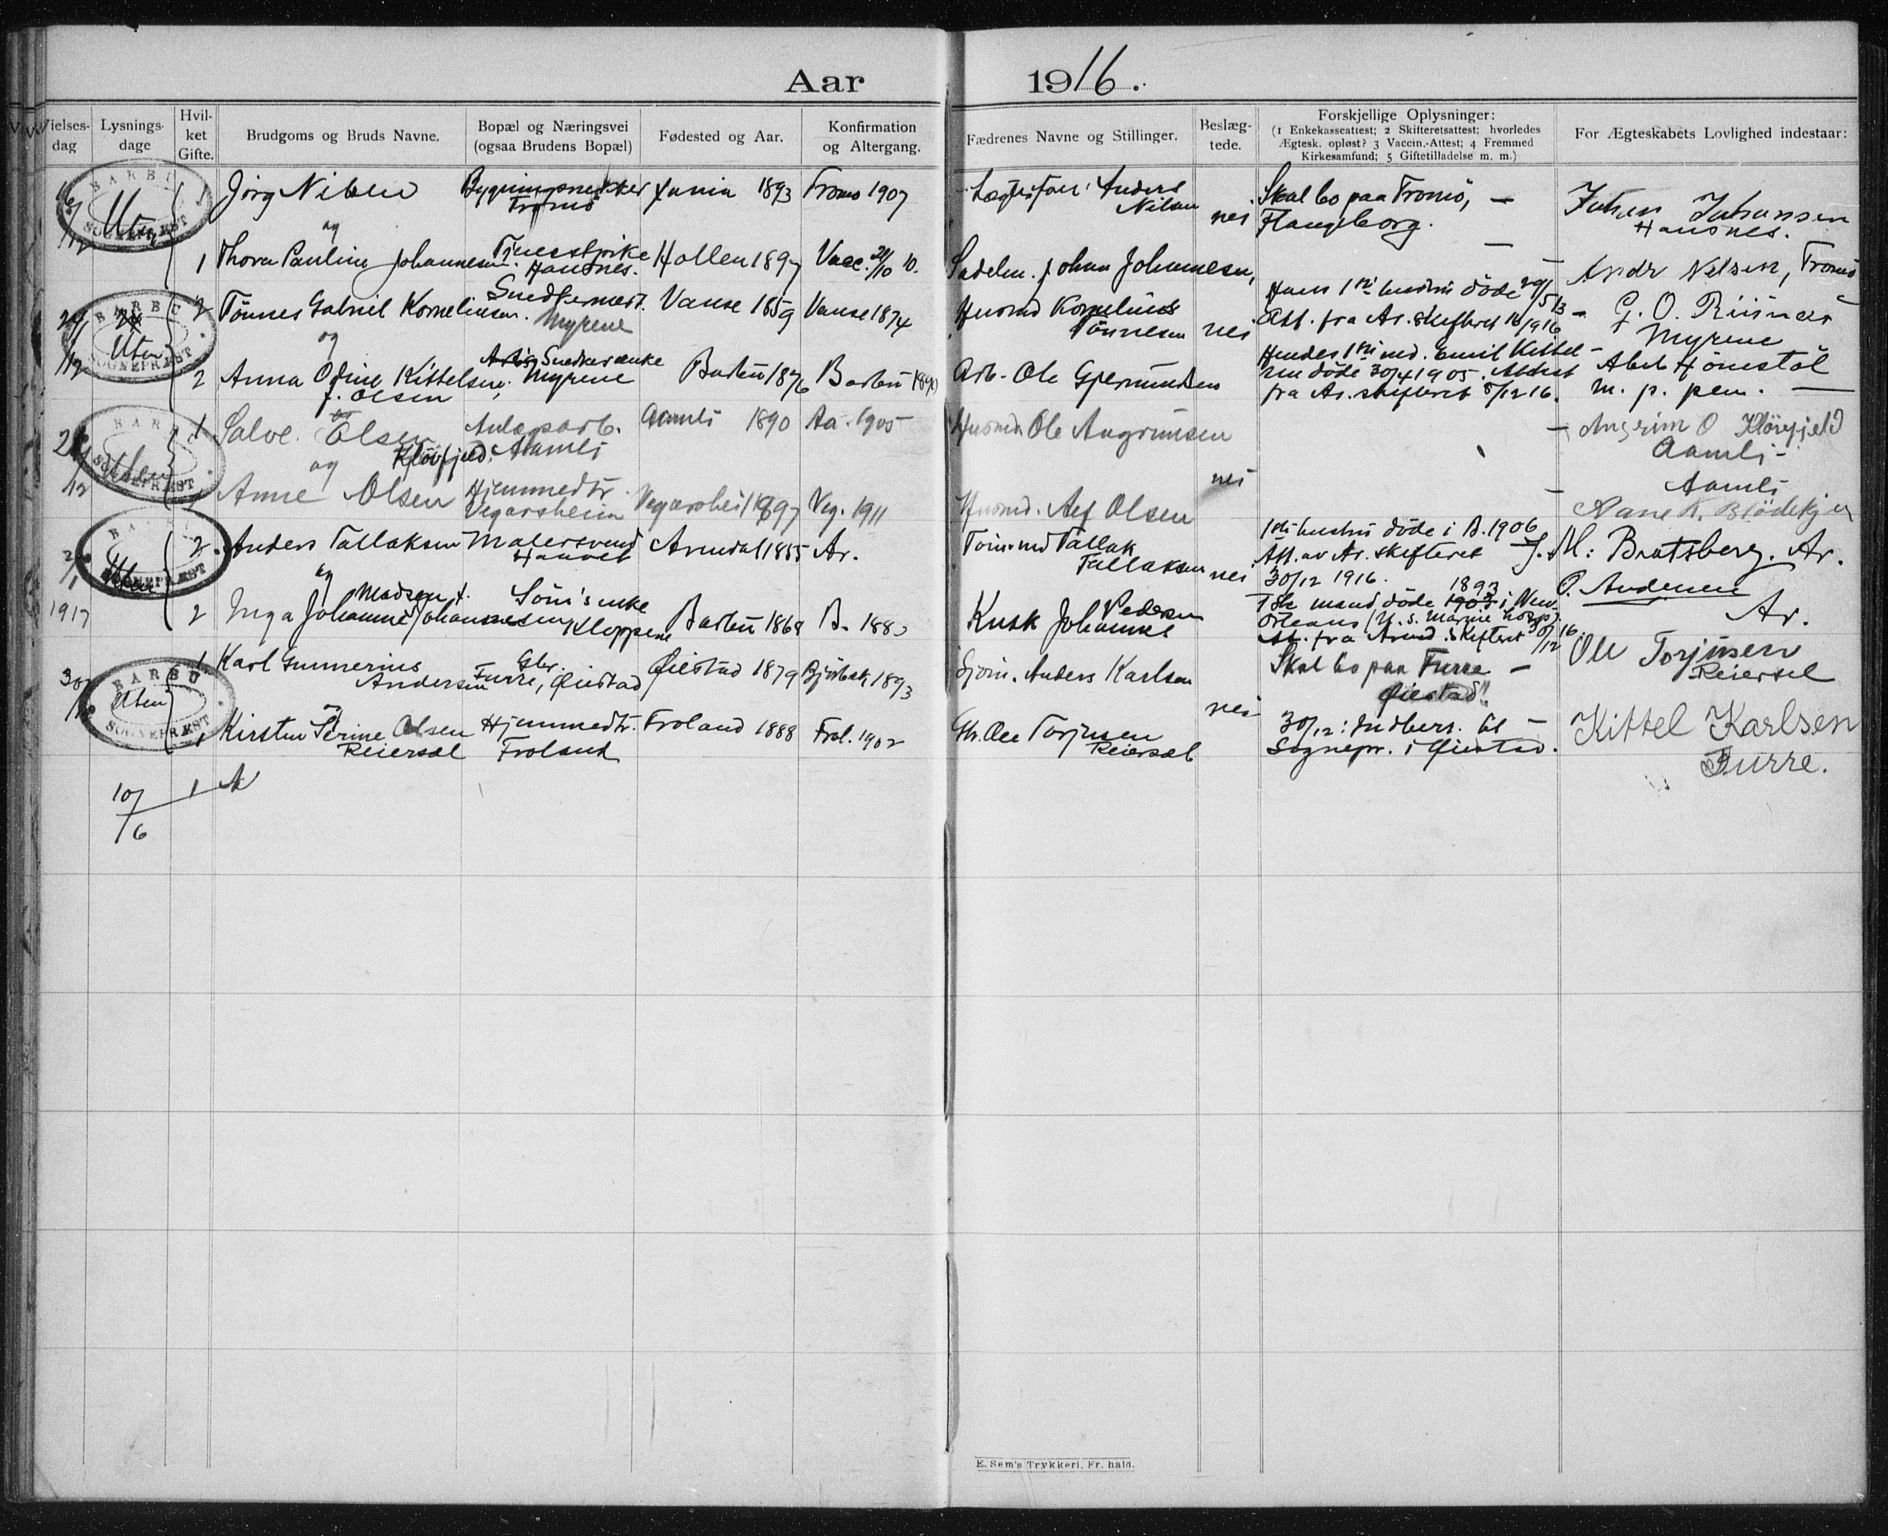 Aar 1916.
Vielses-dag
Lysnings-dage
Hvil-ket Gifte.
Brudgoms og Bruds Navne.
Bopæl og Næringsvei (ogsaa Brudens Bopæl)
Fødested og Aar.
Konfirmation og Altergang.
Fædrenes Navne og Stillinger.
Beslæg-tede.
Forskjellige Oplysninger: (1 Enkekasseattest; 2 Skifteretsattest; hvorledes Ægtesk. opløst? 3 Vaccin.-Attest; 4 Fremmed Kirkesamfund; 5 Giftetilladelse m. m.)
For Ægteskabets Lovlighed indestaar:
BARBU SOGNEPRÆST
Uten
1 Jørg Nilsen
Bygningssnedker Tromø
1893
Tromø 1907
Anders Nilsen
nei
Skal bo paa Tromø, —
Flangeborg.
Johan Johansen
Hausnes.
og
1 Thora Pauline Johannesen.
Tjenestpike Hausnes.
Hollen 1897
Vacc. 20/10 10.
Sadelm. Johan Johannesen,
—
Andr Nilsen, Tromø
BARBU SOGNEPRÆST
Uten
2 Tønnes Gabriel Kornelinsen.
Snedkermest. Myrene
Vanse 1859
Vanse 1874
Husmd Kornelius Tønnesen
nei
Hans 1ste hustru døde 29/5 13 —
Att. fra Ar. skifteret 16/1916
G. O. Riisnæs
Myrene
og
2 Anna Odine Kittelsen, f. Olsen
Snedkerenke Myrene
Barbu 1876
Barbu 1890
Arb. Ole Gjermundsen
Hendes 1ste md. Emil Kittel-
sen døde 30/4 1905. Attest
fra Ar. skifteret 8/12 16.
Abel Hønestøl
m. p. pen. —
BARBU SOGNEPRÆST
Uten
1 Salve Olsen Kløvfjeld.
Anlægsarb. Aamli
Aamli 1890
Aa. 1905
Husmd Ole Angrimsen
nei
—
Angrim O Kløvfjeld
Aamli
og
Anne Olsen
Hjemmedtr. Vegarsheien
Vegarshei 1897
Veg. 1911
Husmd. Olsen
—
Aamli
BARBU SOGNEPRÆST
Uten
2/1 1917
2. Anders Tallaksen
Malersvend
Arendal 1855
Ar.
Tømmd Tallak Tallaksen
nei
1ste hustru døde i B. 1906
Att. av Ar. skifteret —
30/12 1916.
J. M: Bratsberg. Ar.
og
2 Inga Johanne Johannesen Madsen f.
Søm's enke Kloppene
Barbu 1868
B. 188
Kusk Johannes Pedersen
1ste mand døde 1893 i New
Orleans (U. S. Marine korps).
Att. fra Arend. Skifteret 30/12 16.
P. Andersen
Ar.
BARBU SOGNEPRÆST
Uten
1 Karl Gunnerius Andersen
Gbr. Furre, Øiestad
Øiestad 1879
1893
Sjøm. Anders Karlsen
nei
Skal bo paa Furre —
Øiestad!!
Ole Torjusen
Reiersøl
og
1 Kirsten Serine Olsen Reiersøl
Hjemmedtr. Froland
Froland 1888
Frol. 1902
Gb. Ole Torjusen Reiersøl
30/12: Indber. til —
Sognepr. i Øiestad.
Kittel Karlsen
Furre.
E. Sem's Trykkeri, Fr. hald.